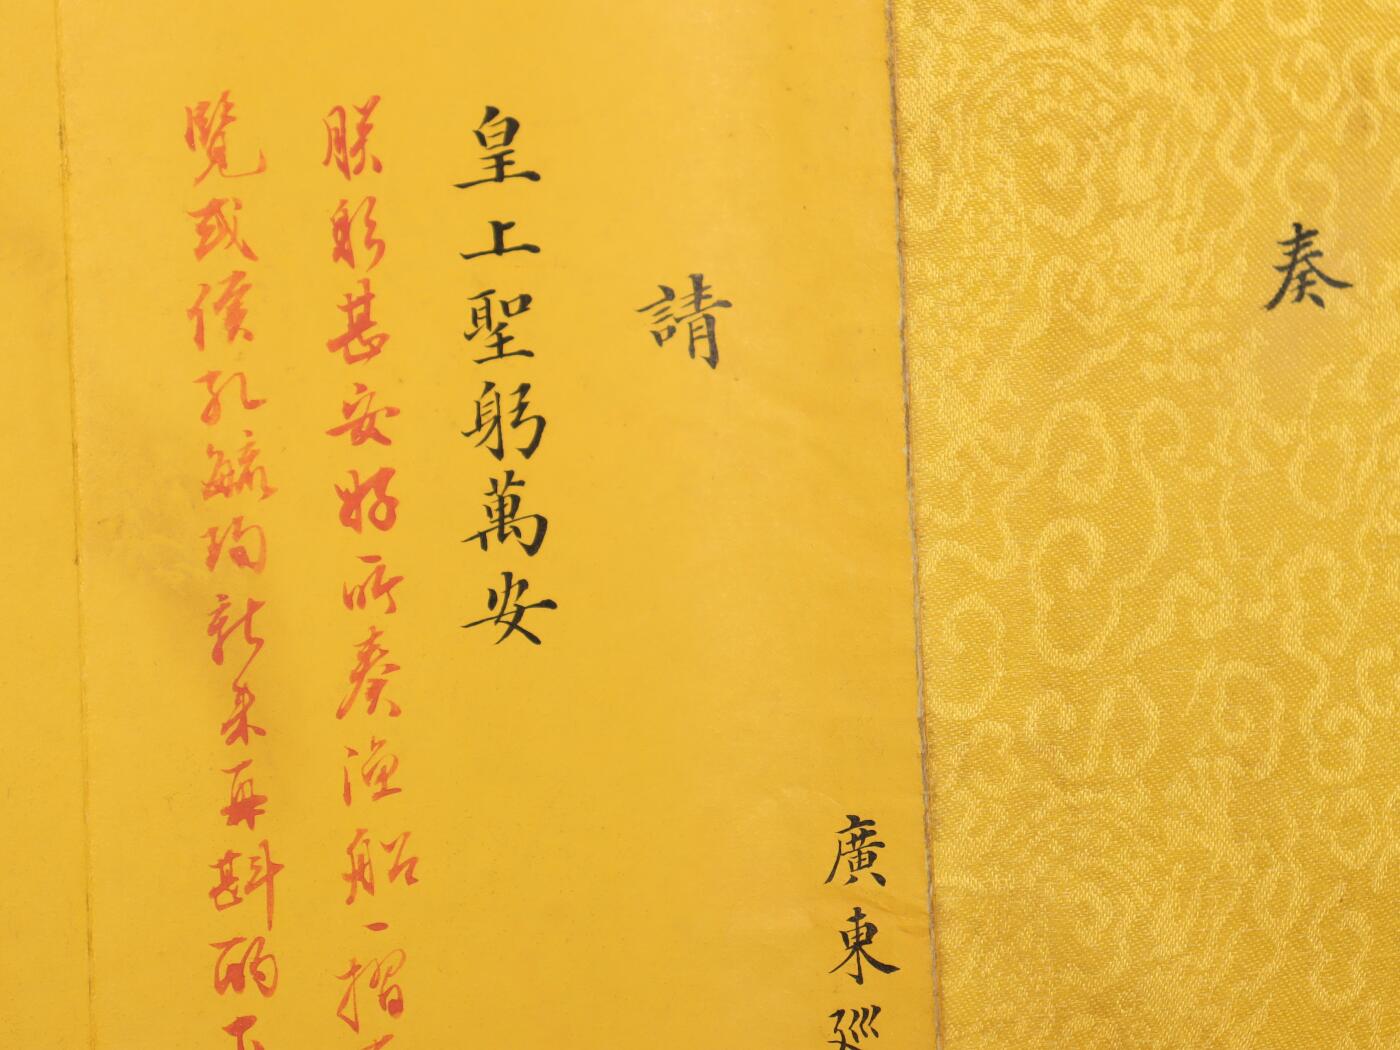 奏
廣東巡
請
皇上聖躬萬安
朕躬甚安好所奏漁船一摺
覽或候孔毓珣新來再斟酌